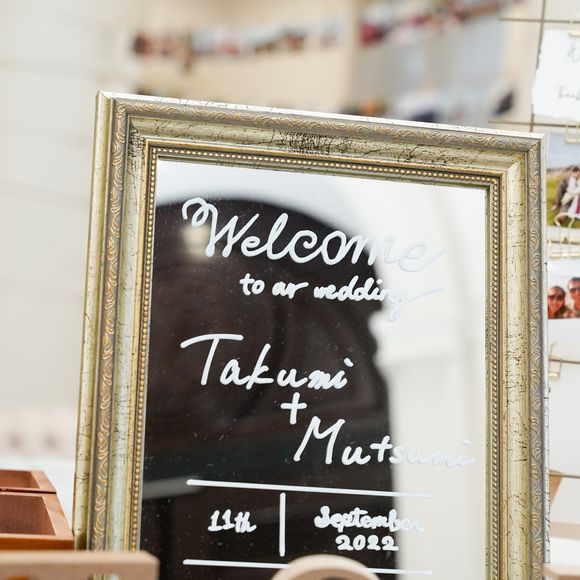 Welcome
to our wedding
Takumi
+
Mutsumi
11th
September
2022